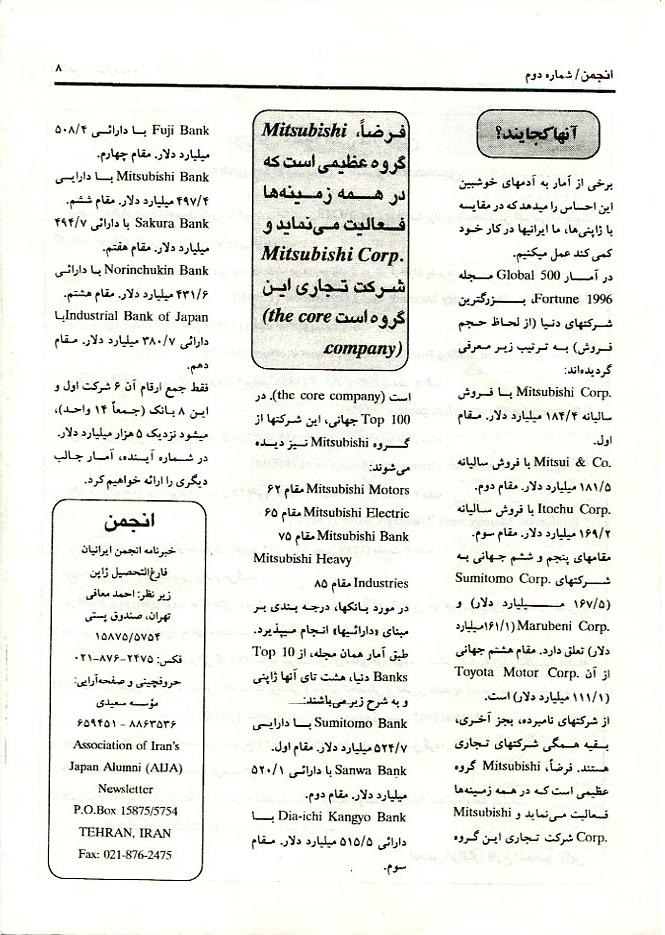 انجمن / شماره دوم
۸
آنها کجایند؟
برخی از آمار به آدمهای خوشبین
این احساس را میدهد که در مقایسه
با ژاپنی‌ها، ما ایرانیها در کار خود
کمی کند عمل میکنیم.
در آمــار Global 500 مـجله
Fortune 1996، بــــزرگترین
شـرکتهای دنـیا (از لحـاظ حـجم
فروش) بـه تـرتیب زیـر مـعرفی
گردیده‌اند:
Mitsubishi Corp. بـا فـروش
سالیانه ۱۸۴/۴ میلیارد دلار. مـقام
اول.
Mitsui & Co. با فروش سالیانه
۱۸۱/۵ میلیارد دلار. مقام دوم.
Itochu Corp. با فروش سـالیانه
۱۶۹/۲ میلیارد دلار. مقام سوم.
مقامهای پنجم و ششم جـهانی بـه
شــرکتهای Sumitomo Corp.
(۱۶۷/۵ مـــــیلیارد دلار) و
Marubeni Corp. (۱۶۱/۱میلیارد
دلار) تعلق دارد. مقام هشتم جهانی
از آن Toyota Motor Corp.
(۱۱۱/۱ میلیارد دلار) است.
از شرکتهای نامبرده، بجز آخری،
بـقیه هـمگی شرکتهای تـجاری
هستند. فرضاً، Mitsubishi گروه
عظیمی است کـه در هـمه زمـینه‌ها
فـعالیت می‌نماید و Mitsubishi
Corp. شرکت تـجاری ایـن گـروه
فـرضاً، Mitsubishi
گروه عظیمی است که
در هــمه زمــینه‌ها
فــعالیت می‌نماید و
Mitsubishi Corp.
شرکت تـجاری ایـن
گروه است (the core
company)
است (the core company). در
Top 100 جهانی، این شرکتها از
گـــروه Mitsubishi نـیز دیـده
می‌شوند:
Mitsubishi Motors مقام ۶۲
Mitsubishi Electric مقام ۶۵
Mitsubishi Bank مقام ۷۵
Mitsubishi Heavy
Industries مقام ۸۵
در مورد بـانکها، درجـه بـندی بـر
مبنای «دارائیها» انـجام مـیپذیرد.
طبق آمار همان مجله، از Top 10
Banks دنیا، هشت تای آنها ژاپنی
و به شرح زیر می‌باشند:
Sumitomo Bank بـا دارایـی
۵۲۴/۷ میلیارد دلار. مقام اول.
Sanwa Bank با دارائی ۵۲۰/۱
میلیارد دلار. مقام دوم.
Dia-ichi Kangyo Bank بـــا
دارائی ۵۱۵/۵ میلیارد دلار. مـقام
سوم.
Fuji Bank بــا دارائــی ۵۰۸/۴
میلیارد دلار. مقام چهارم.
Mitsubishi Bank بــا دارایــی
۴۹۷/۴ میلیارد دلار. مقام ششم.
Sakura Bank با دارائی ۴۹۴/۷
میلیارد دلار. مقام هفتم.
Norinchukin Bank بـا دارائی
۴۳۱/۶ میلیارد دلار. مقام هشتم.
Industrial Bank of Japanبـا
دارائی ۳۸۰/۷ میلیارد دلار. مـقام
دهم.
فقط جمع ارقام آن ۶ شرکت اول و
این ۸ بـانک (جـمعاً ۱۴ واحـد)،
میشود نزدیک ۵ هزار میلیارد دلار.
در شـماره آیـنده، آمـار جـالب
دیگری را ارائه خواهیم کرد.
انجمن
خبرنامه انجمن ایرانیان
فارغ‌التحصیل ژاپن
زیر نظر: احمد معافی
تهران، صندوق پستی
۱۵۸۷۵/۵۷۵۴
فکس: ۲۴۷۵-۸۷۶-۰۲۱
حروفچینی و صفحه‌آرایی:
مؤسسه سعیدی
۸۸۶۳۵۳۶ - ۶۵۹۴۵۱
Association of Iran's
Japan Alumni (AIJA)
Newsletter
P.O.Box 15875/5754
TEHRAN, IRAN
Fax: 021-876-2475